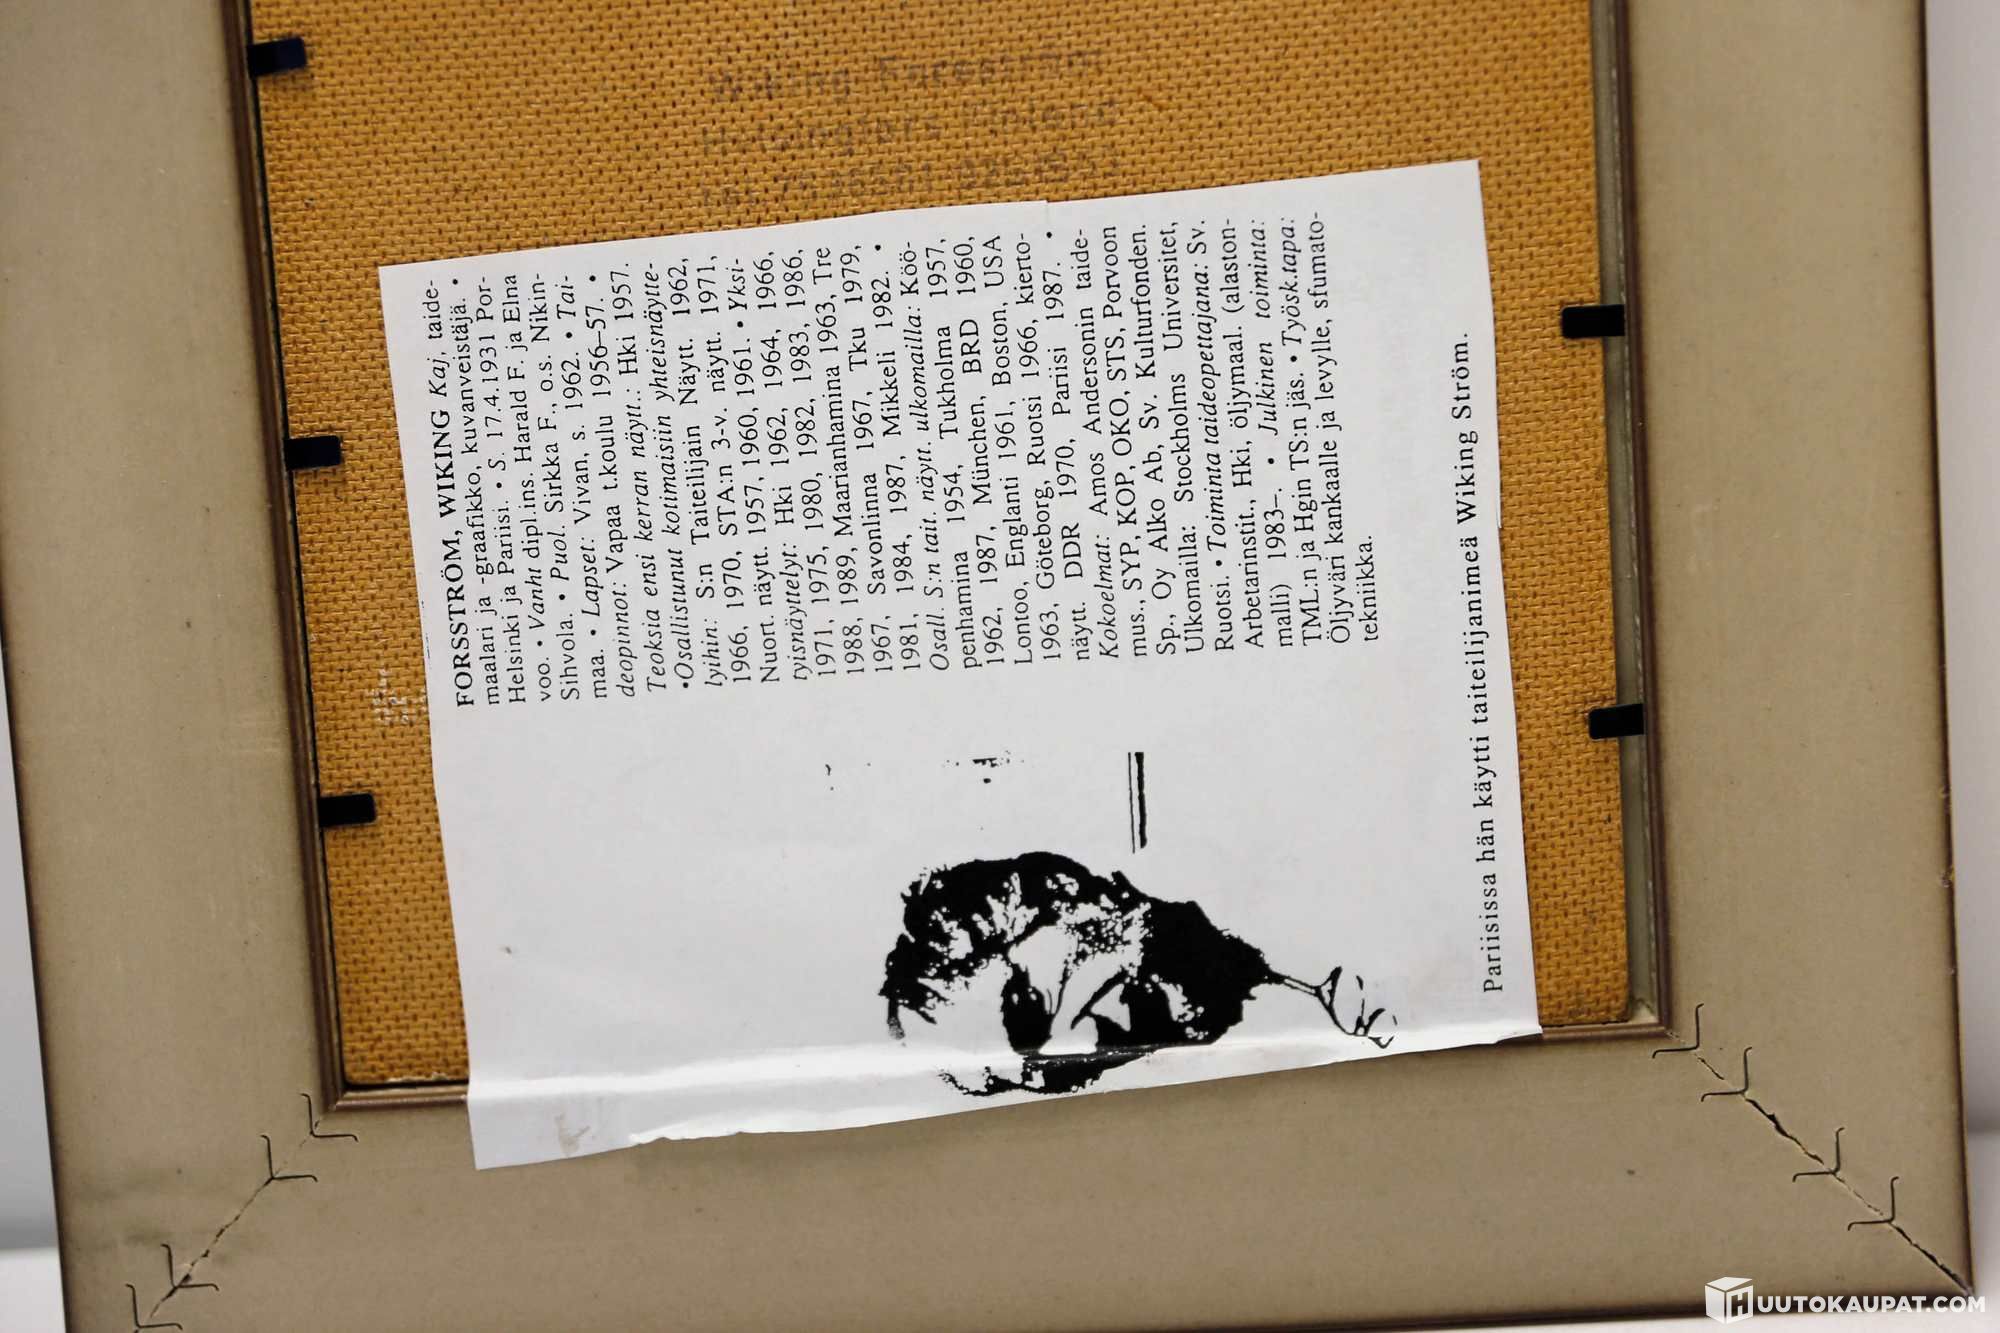 Wiking Forsström
Helsingfors Finland
FORSSTRÖM, WIKING Kaj, taide-
maalari ja -graafikko, kuvanveistäjä. •
Helsinki ja Pariisi. • S. 17.4.1931 Por-
voo. • Vanht dipl.ins. Harald F. ja Elna
Sihvola. • Puol. Sirkka F., o.s. Nikin-
maa. • Lapset: Vivan, s. 1962. • Tai-
deopinnot: Vapaa t.koulu 1956–57. •
Teoksia ensi kerran näytt.: Hki 1957.
•Osallistunut kotimaisiin yhteisnäytte-
lyihin: S:n Taiteilijain Näytt. 1962,
1966, 1970, STA:n 3-v. näytt. 1971,
Nuort. näytt. 1957, 1960, 1961. • Yksi-
tyisnäyttelyt: Hki 1962, 1964, 1966,
1971, 1975, 1980, 1982, 1983, 1986,
1988, 1989, Maarianhamina 1963, Tre
1967, Savonlinna 1967, Tku 1979,
1981, 1984, 1987, Mikkeli 1982. •
Osall. S:n tait. näytt. ulkomailla: Köö-
penhamina 1954, Tukholma 1957,
1962, 1987, München, BRD 1960,
Lontoo, Englanti 1961, Boston, USA
1963, Göteborg, Ruotsi 1966, kierto-
näytt. DDR 1970, Pariisi 1987. •
Kokoelmat: Amos Andersonin taide-
mus., SYP, KOP, OKO, STS, Porvoon
Sp., Oy Alko Ab, Sv. Kulturfonden.
Ulkomailla: Stockholms Universitet,
Ruotsi. • Toiminta taideopettajana: Sv.
Arbetarinstit., Hki, öljymaal. (alaston-
malli) 1983–. • Julkinen toiminta:
TML:n ja Hgin TS:n jäs. • Työsk.tapa:
Öljyväri kankaalle ja levylle, sfumato-
tekniikka.
Pariisissa hän käytti taiteilijanimeä Wiking Ström.
HUUTOKAUPAT.COM